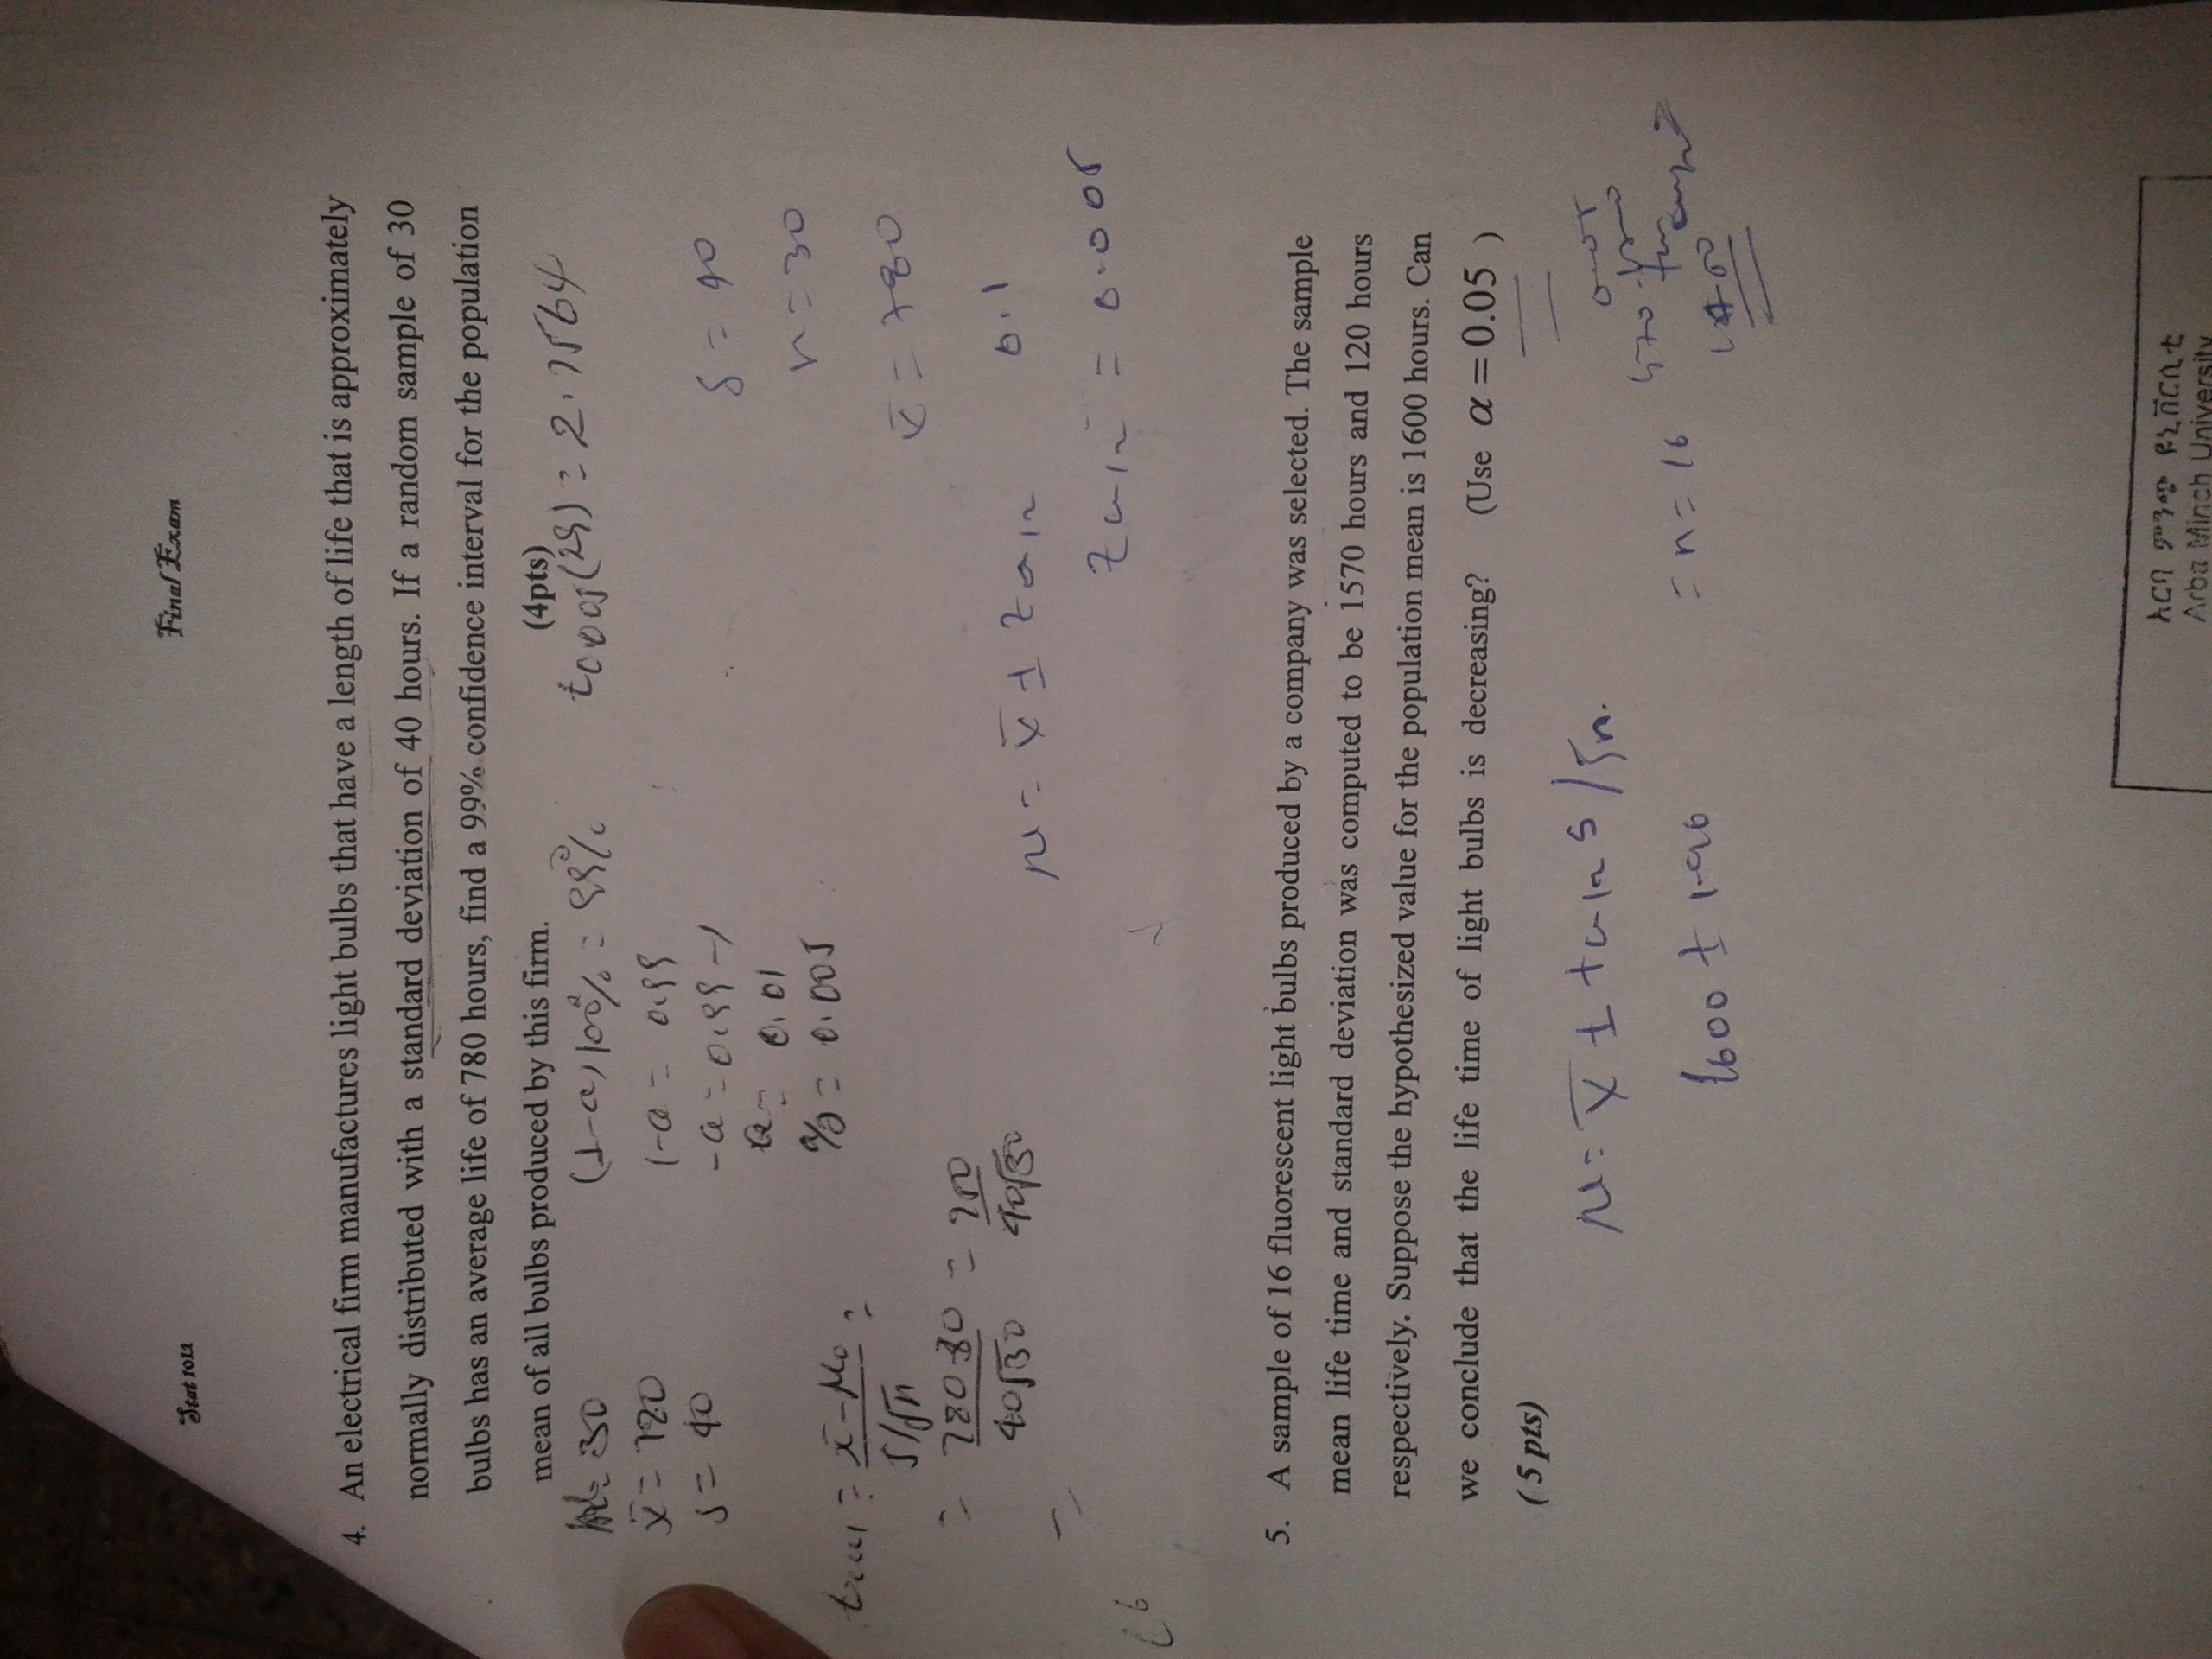 Stat 1012
Final Exam
4. An electrical firm manufactures light bulbs that have a length of life that is approximately
normally distributed with a standard deviation of 40 hours. If a random sample of 30
bulbs has an average life of 780 hours, find a 99% confidence interval for the population
mean of all bulbs produced by this firm. (4pts)
(1-α)100% = 99%
1-α = 0.99
-α = 0.99-1
α = 0.01
α/2 = 0.005
= 2.7564
n = 30
x̄ = 780
s = 40
x̄ - μ0
s/√n
40√30
40√30
s = 40
n = 30
x̄ = 780
μ = x̄ ± Zα/2
0.1
Zα/2 = 0.005
5. A sample of 16 fluorescent light bulbs produced by a company was selected. The sample
mean life time and standard deviation was computed to be 1570 hours and 120 hours
respectively. Suppose the hypothesized value for the population mean is 1600 hours. Can
we conclude that the life time of light bulbs is decreasing? (Use α = 0.05 )
(5 pts)
μ = x̄ ± tα/2 s/√n
1600 ± 1.96
= n = 16
አርባ ምንጭ ዩኒቨርሲቲ
Arba Minch University